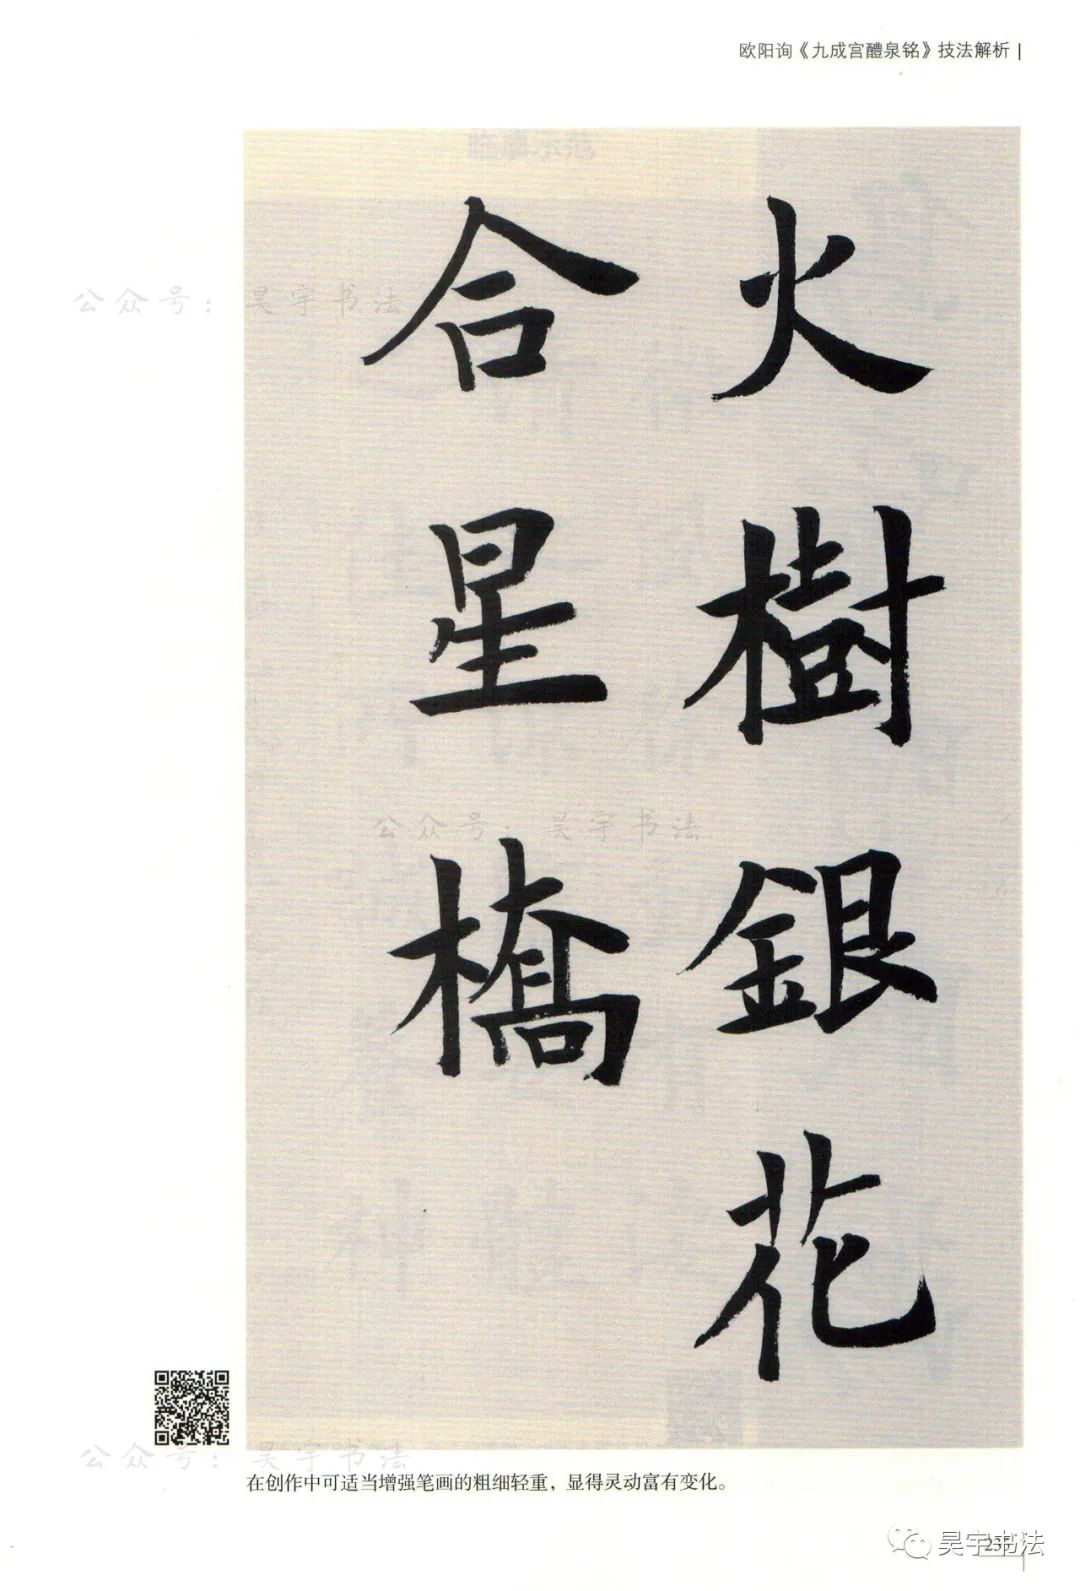 欧阳询《九成宫醴泉铭》技法解析
火樹銀花
合星橋
公众号：昊宇书法
公众号：昊宇书法
公众号：昊宇书法
在创作中可适当增强笔画的粗细轻重，显得灵动富有变化。
昊宇书法